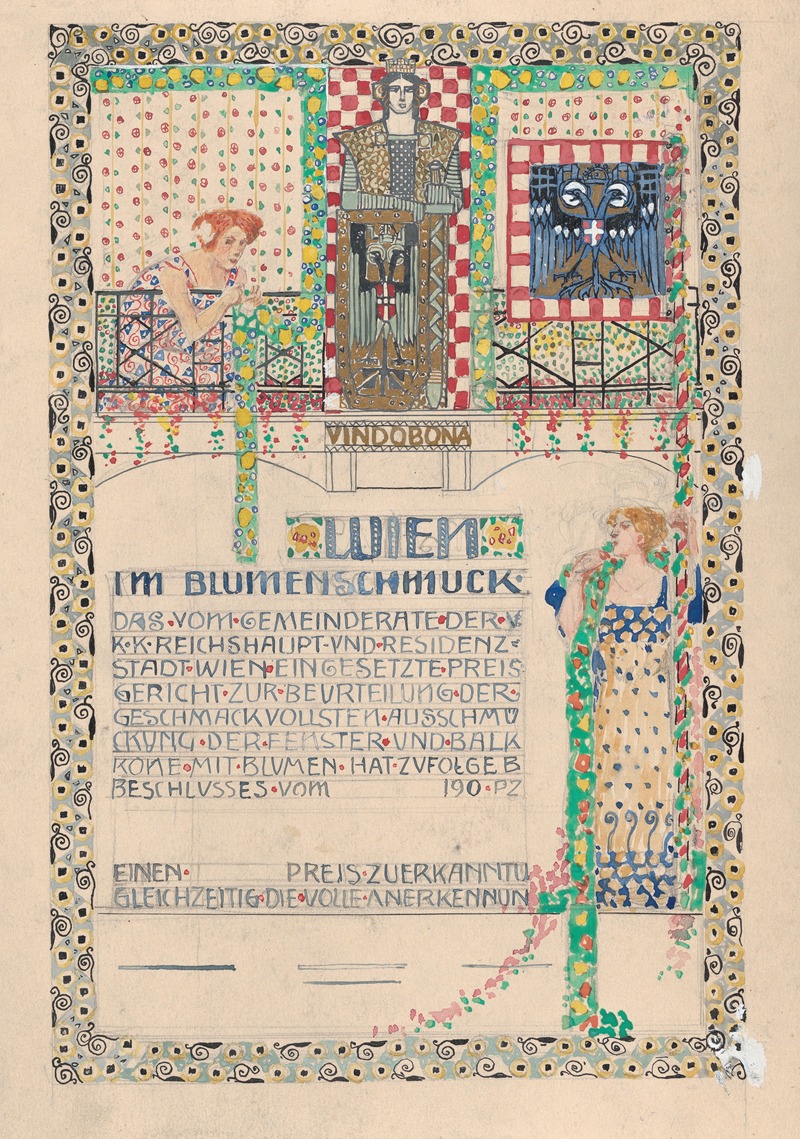 VINDOBONA
WIEN
IM BLUMENSCHMUCK
DAS·VOM·GEMEINDERATE·DER·
K·K·REICHSHAUPT-VND·RESIDENZ-
STADT·WIEN·EINGESETZTE·PREIS
GERICHT·ZUR·BEURTEILUNG·DER·
GESCHMACKVOLLSTEN·AUSSCHMÜ
CKVNG·DER·FENSTER·UND·BALK
KONE·MIT·BLUMEN·HAT·ZVFOLGE B
BESCHLVSSES·VOM 190·PZ
EINEN· PREIS·ZUERKANNT U
GLEICHZEITIG·DIE·VOLLE·ANERKENNUN